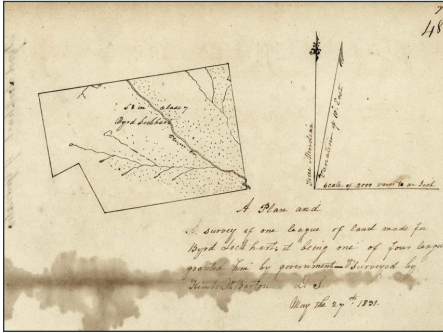 48
Byrd Lockhart
True Meridian
Variation of 10° East
Scale of 2000 varas to an Inch
A Plan and
survey of one league of land made for
Byrd Lockhart it being one of four league
granted him by government — Surveyed by
Kimble W Barton
May the 27th 1831.